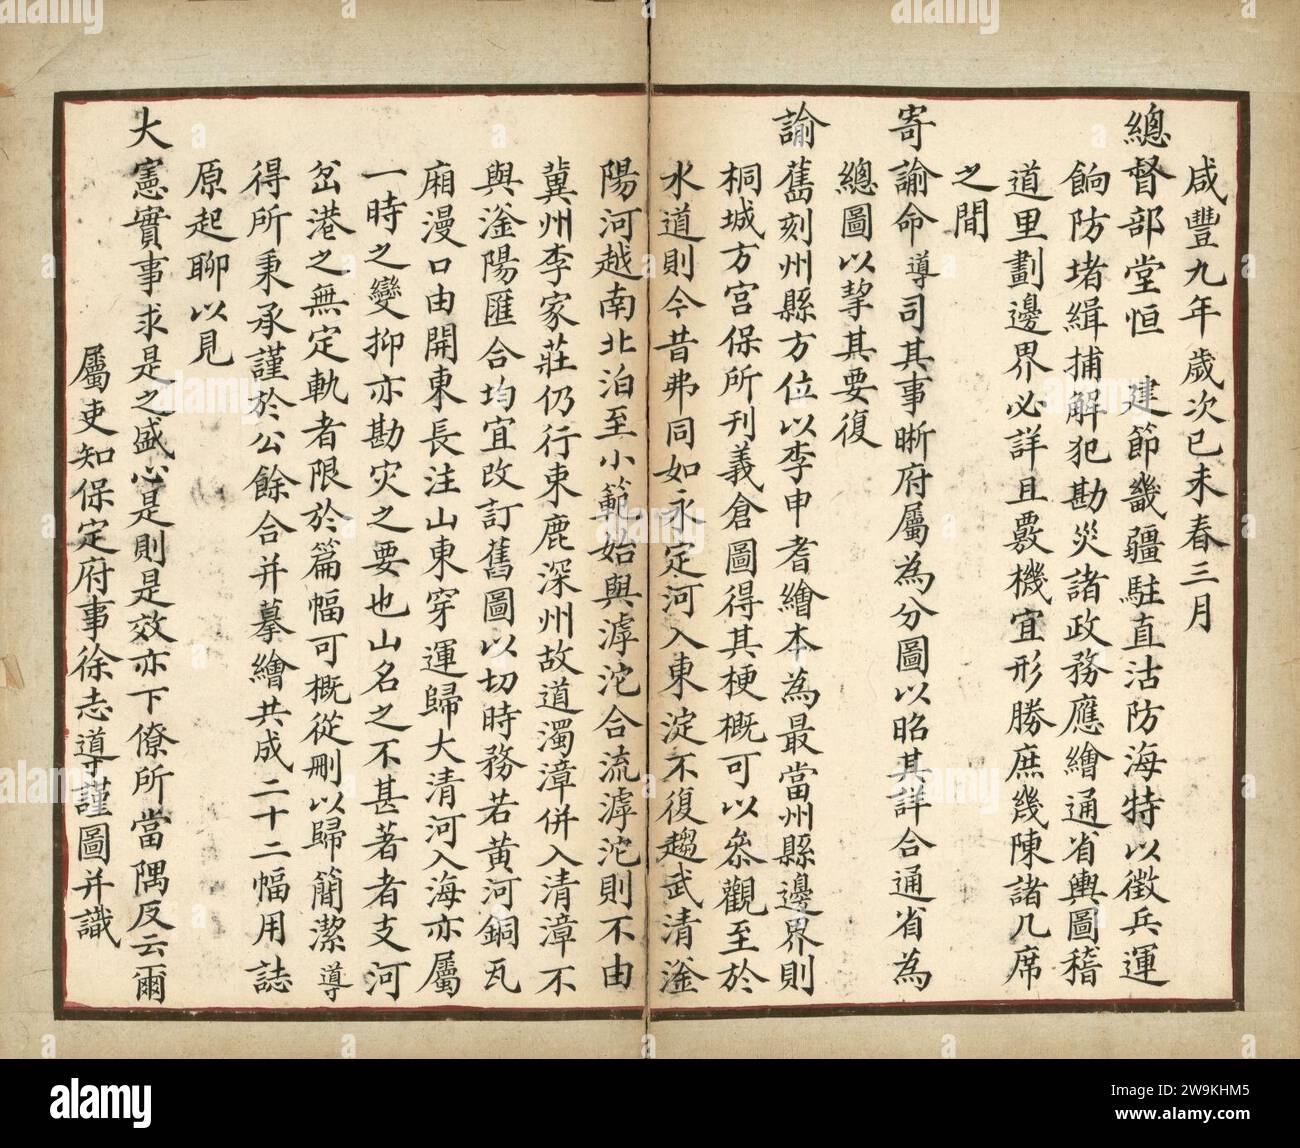 咸豐九年歲次已未春三月
總督部堂恒　建節畿疆駐直沽防海特以徵兵運
餉防堵緝捕解犯勘災諸政務應繪通省輿圖稽
道里劃邊界必詳且覈機宜形勝庶幾陳諸几席
之間
寄諭命導司其事晰府屬為分圖以昭其詳合通省為
總圖以挈其要復
諭舊刻州縣方位以李申耆繪本為最當州縣邊界則
桐城方宮保所刊義倉圖得其梗概可以叅觀至於
水道則今昔弗同如永定河入東淀不復趨武清滏
陽河越南北泊至小範始與滹沱合流滹沱則不由
冀州李家莊仍行束鹿深州故道濁漳併入清漳不
與滏陽匯合均宜改訂舊圖以切時務若黃河銅瓦
廂漫口由開東長注山東穿運歸大清河入海亦屬
一時之變抑亦勘灾之要也山名之不甚著者支河
岔港之無定軌者限於篇幅可概從刪以歸簡潔導
得所秉承謹於公餘合并摹繪共成二十二幅用誌
原起聊以見
大憲實事求是之盛心是則是效亦下僚所當隅反云爾
屬吏知保定府事徐志導謹圖并識
alamy
Image ID: 2W9KHM5
www.alamy.com